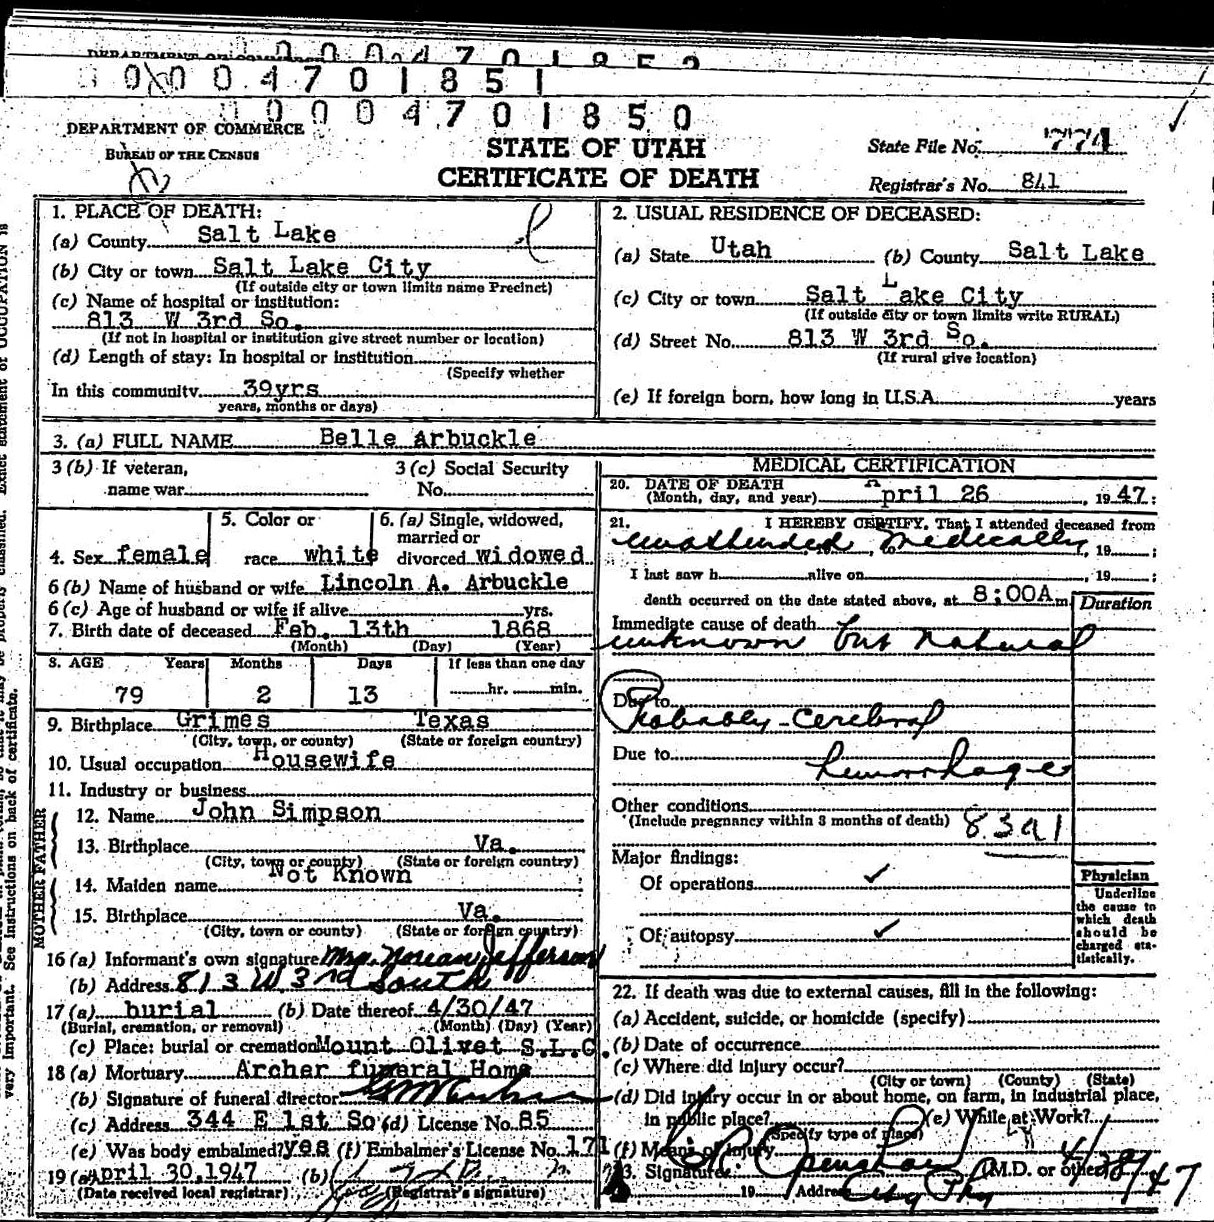 0004701851
0004701850
DEPARTMENT OF COMMERCE
BUREAU OF THE CENSUS
STATE OF UTAH
CERTIFICATE OF DEATH
State File No. 774
Registrar's No. 841
1. PLACE OF DEATH:
(a) County Salt Lake
(b) City or town Salt Lake City
(If outside city or town limits name Precinct)
(c) Name of hospital or institution:
813 W 3rd So.
(If not in hospital or institution give street number or location)
(d) Length of stay: In hospital or institution
(Specify whether
In this community 39yrs
years, months or days)
2. USUAL RESIDENCE OF DECEASED:
(a) State Utah (b) County Salt Lake
(c) City or town Salt Lake City
(If outside city or town limits write RURAL)
(d) Street No. 813 W 3rd So.
(If rural give location)
(e) If foreign born, how long in U.S.A. years
3. (a) FULL NAME Belle Arbuckle
3 (b) If veteran,
name war
3 (c) Social Security
No.
4. Sex female
5. Color or
race white
6. (a) Single, widowed,
married or
divorced widowed
6 (b) Name of husband or wife Lincoln A. Arbuckle
6 (c) Age of husband or wife if alive yrs.
7. Birth date of deceased Feb. 13th 1868
(Month) (Day) (Year)
8. AGE Years Months Days If less than one day
79 2 13 hr. min.
9. Birthplace Grimes Texas
(City, town, or county) (State or foreign country)
10. Usual occupation Housewife
11. Industry or business
FATHER
12. Name John Simpson
13. Birthplace Va.
(City, town or county) (State or foreign country)
MOTHER
14. Maiden name Not Known
15. Birthplace Va.
(City, town or county) (State or foreign country)
16 (a) Informant's own signature Mrs. Norean Jefferson
(b) Address 813 W 3rd South
17 (a) burial (b) Date thereof 4/30/47
(Burial, cremation, or removal) (Month) (Day) (Year)
(c) Place: burial or cremation Mount Olivet S.L.C.
18 (a) Mortuary Archer funeral Home
(b) Signature of funeral director
(c) Address 344 E 1st So (d) License No. 85
(e) Was body embalmed? yes (f) Embalmer's License No. 171
19 (a) April 30, 1947 (b)
(Date received local registrar) (Registrar's signature)
MEDICAL CERTIFICATION
20. DATE OF DEATH
(Month, day, and year) April 26, 1947:
21. I HEREBY CERTIFY, That I attended deceased from
unattended, to Medically, 19 ;
I last saw h alive on , 19 ;
death occurred on the date stated above, at 8:00A m
Duration
Immediate cause of death
unknown but natural
Due to
Probably Cerebral
Due to
hemorrhage
Other conditions
(Include pregnancy within 3 months of death) 83a1
Major findings:
Of operations ✓
Of autopsy ✓
Physician
Underline
the cause to
which death
should be
charged sta-
tistically.
22. If death was due to external causes, fill in the following:
(a) Accident, suicide, or homicide (specify)
(b) Date of occurrence
(c) Where did injury occur?
(City or town) (County) (State)
(d) Did injury occur in or about home, on farm, in industrial place,
in public place? (e) While at Work?
(Specify type of place)
(f) Means of injury
23. Signature (M.D. or other) 4/28/47
19 Address City Phy